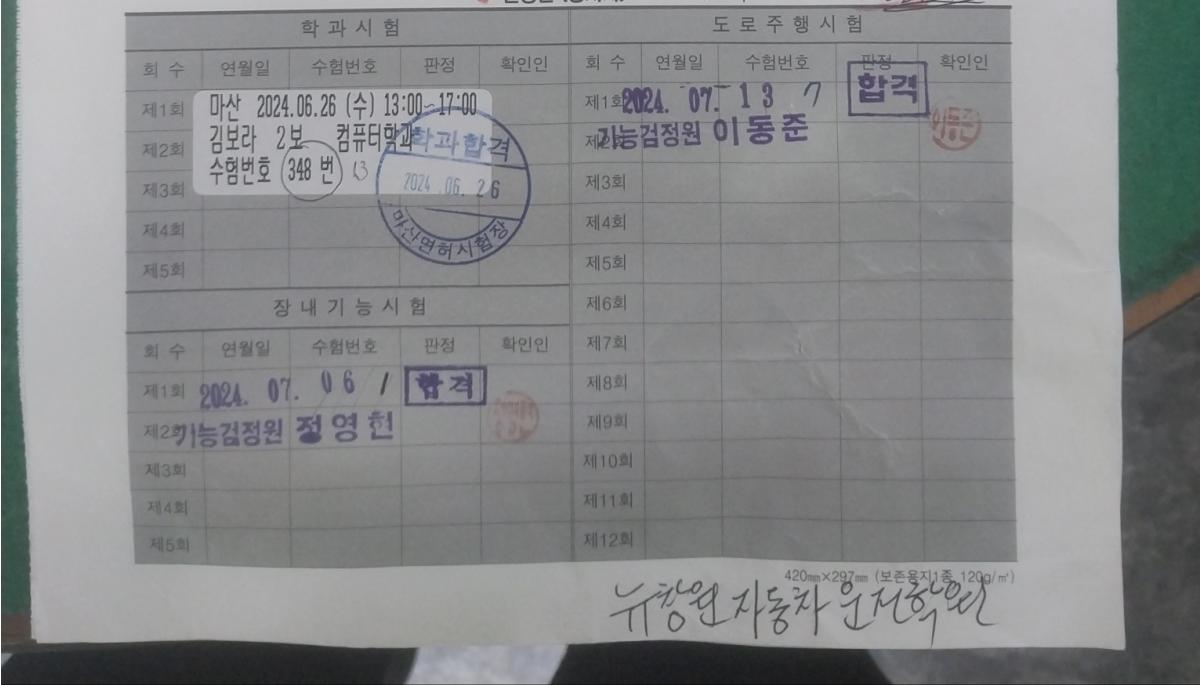 학과시험
회 수 연월일 수험번호 판정 확인인
제1회
마산 2024.06.26 (수) 13:00~17:00
제2회
김보라 2보 컴퓨터학과
수험번호 348 번 13
제3회
학과합격
2024.06.26
마산면허시험장
제4회
제5회
장내기능시험
회 수 연월일 수험번호 판정 확인인
제1회 2024. 07. 06 1 합격
제2회 기능검정원 정영헌
제3회
제4회
제5회
도로주행시험
회 수 연월일 수험번호 판정 확인인
제1회 2024. 07. 13 7 합격
이동준
제2회 기능검정원 이동준
제3회
제4회
제5회
제6회
제7회
제8회
제9회
제10회
제11회
제12회
420㎜×297㎜ (보존용지1종 120g/㎡)
뉴창원 자동차 운전학원